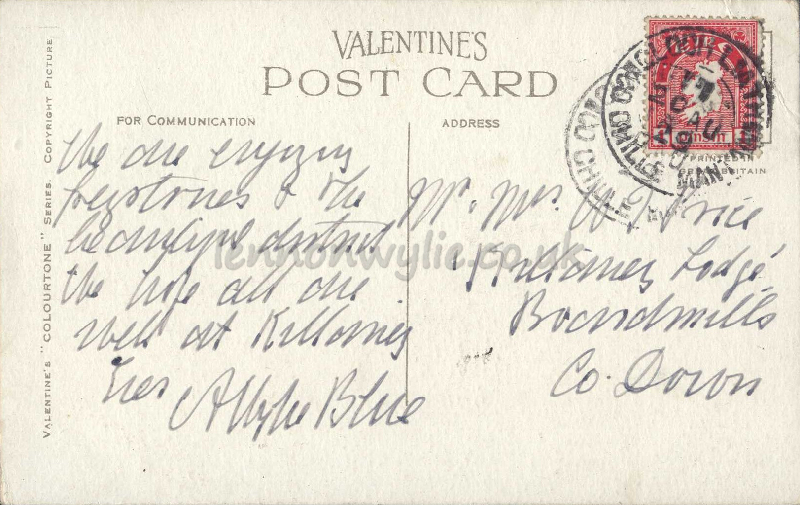 VALENTINE'S
POST CARD
FOR COMMUNICATION
ADDRESS
VALENTINE'S "COLOURTONE" SERIES. COPYRIGHT PICTURE
PRINTED IN
GREAT BRITAIN
We are enjoying
Greystones & the
beautiful district
We hope all are
well at Killarney
Blue
Mr. Mrs Price
Killarney Lodge
Boardmills
Co. Down
lennonwylie.co.uk